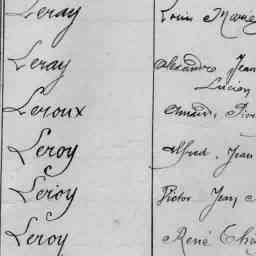 Leray Louis Marie
Leray Alexandre Jean
Lucien
Leroux Amand, Pier
Leroy Alfred, Jean
Leroy Victor Jean
Leroy René